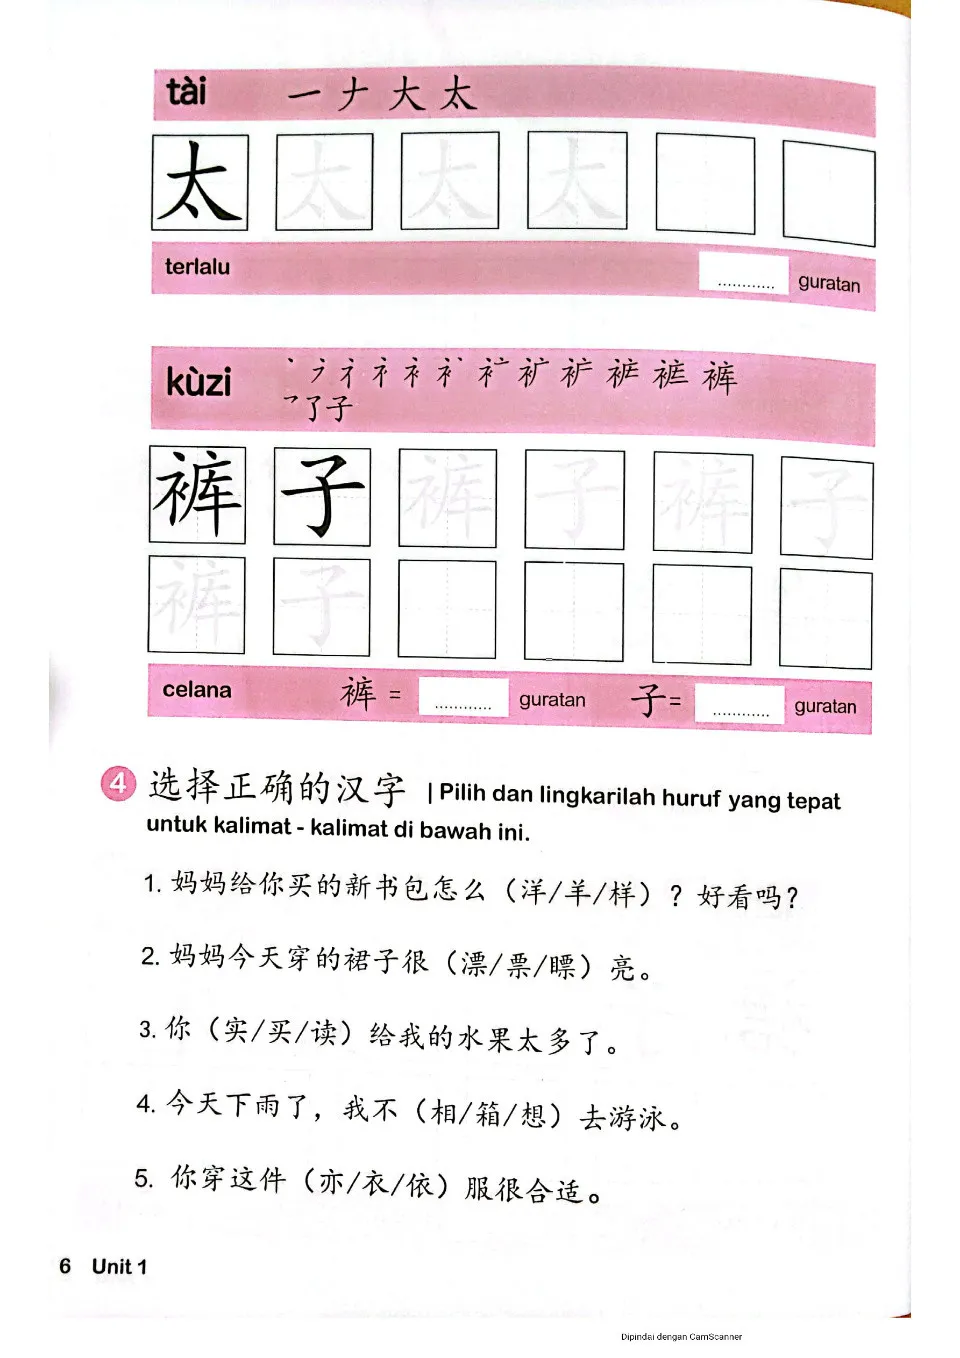 tài 一 ナ 大 太
太 太 太 太
terlalu ............ guratan
kùzi 丶 ㇇ 礻 衤 裤
乛 了 子
裤 子 裤 子 裤 子
裤 子
celana 裤 = ............ guratan 子= ............ guratan
4 选择正确的汉字 | Pilih dan lingkarilah huruf yang tepat
untuk kalimat - kalimat di bawah ini.
1. 妈妈给你买的新书包怎么（洋/羊/样）？好看吗？
2. 妈妈今天穿的裙子很（漂/票/瞟）亮。
3. 你（实/买/读）给我的水果太多了。
4. 今天下雨了，我不（相/箱/想）去游泳。
5. 你穿这件（亦/衣/依）服很合适。
6 Unit 1
Dipindai dengan CamScanner